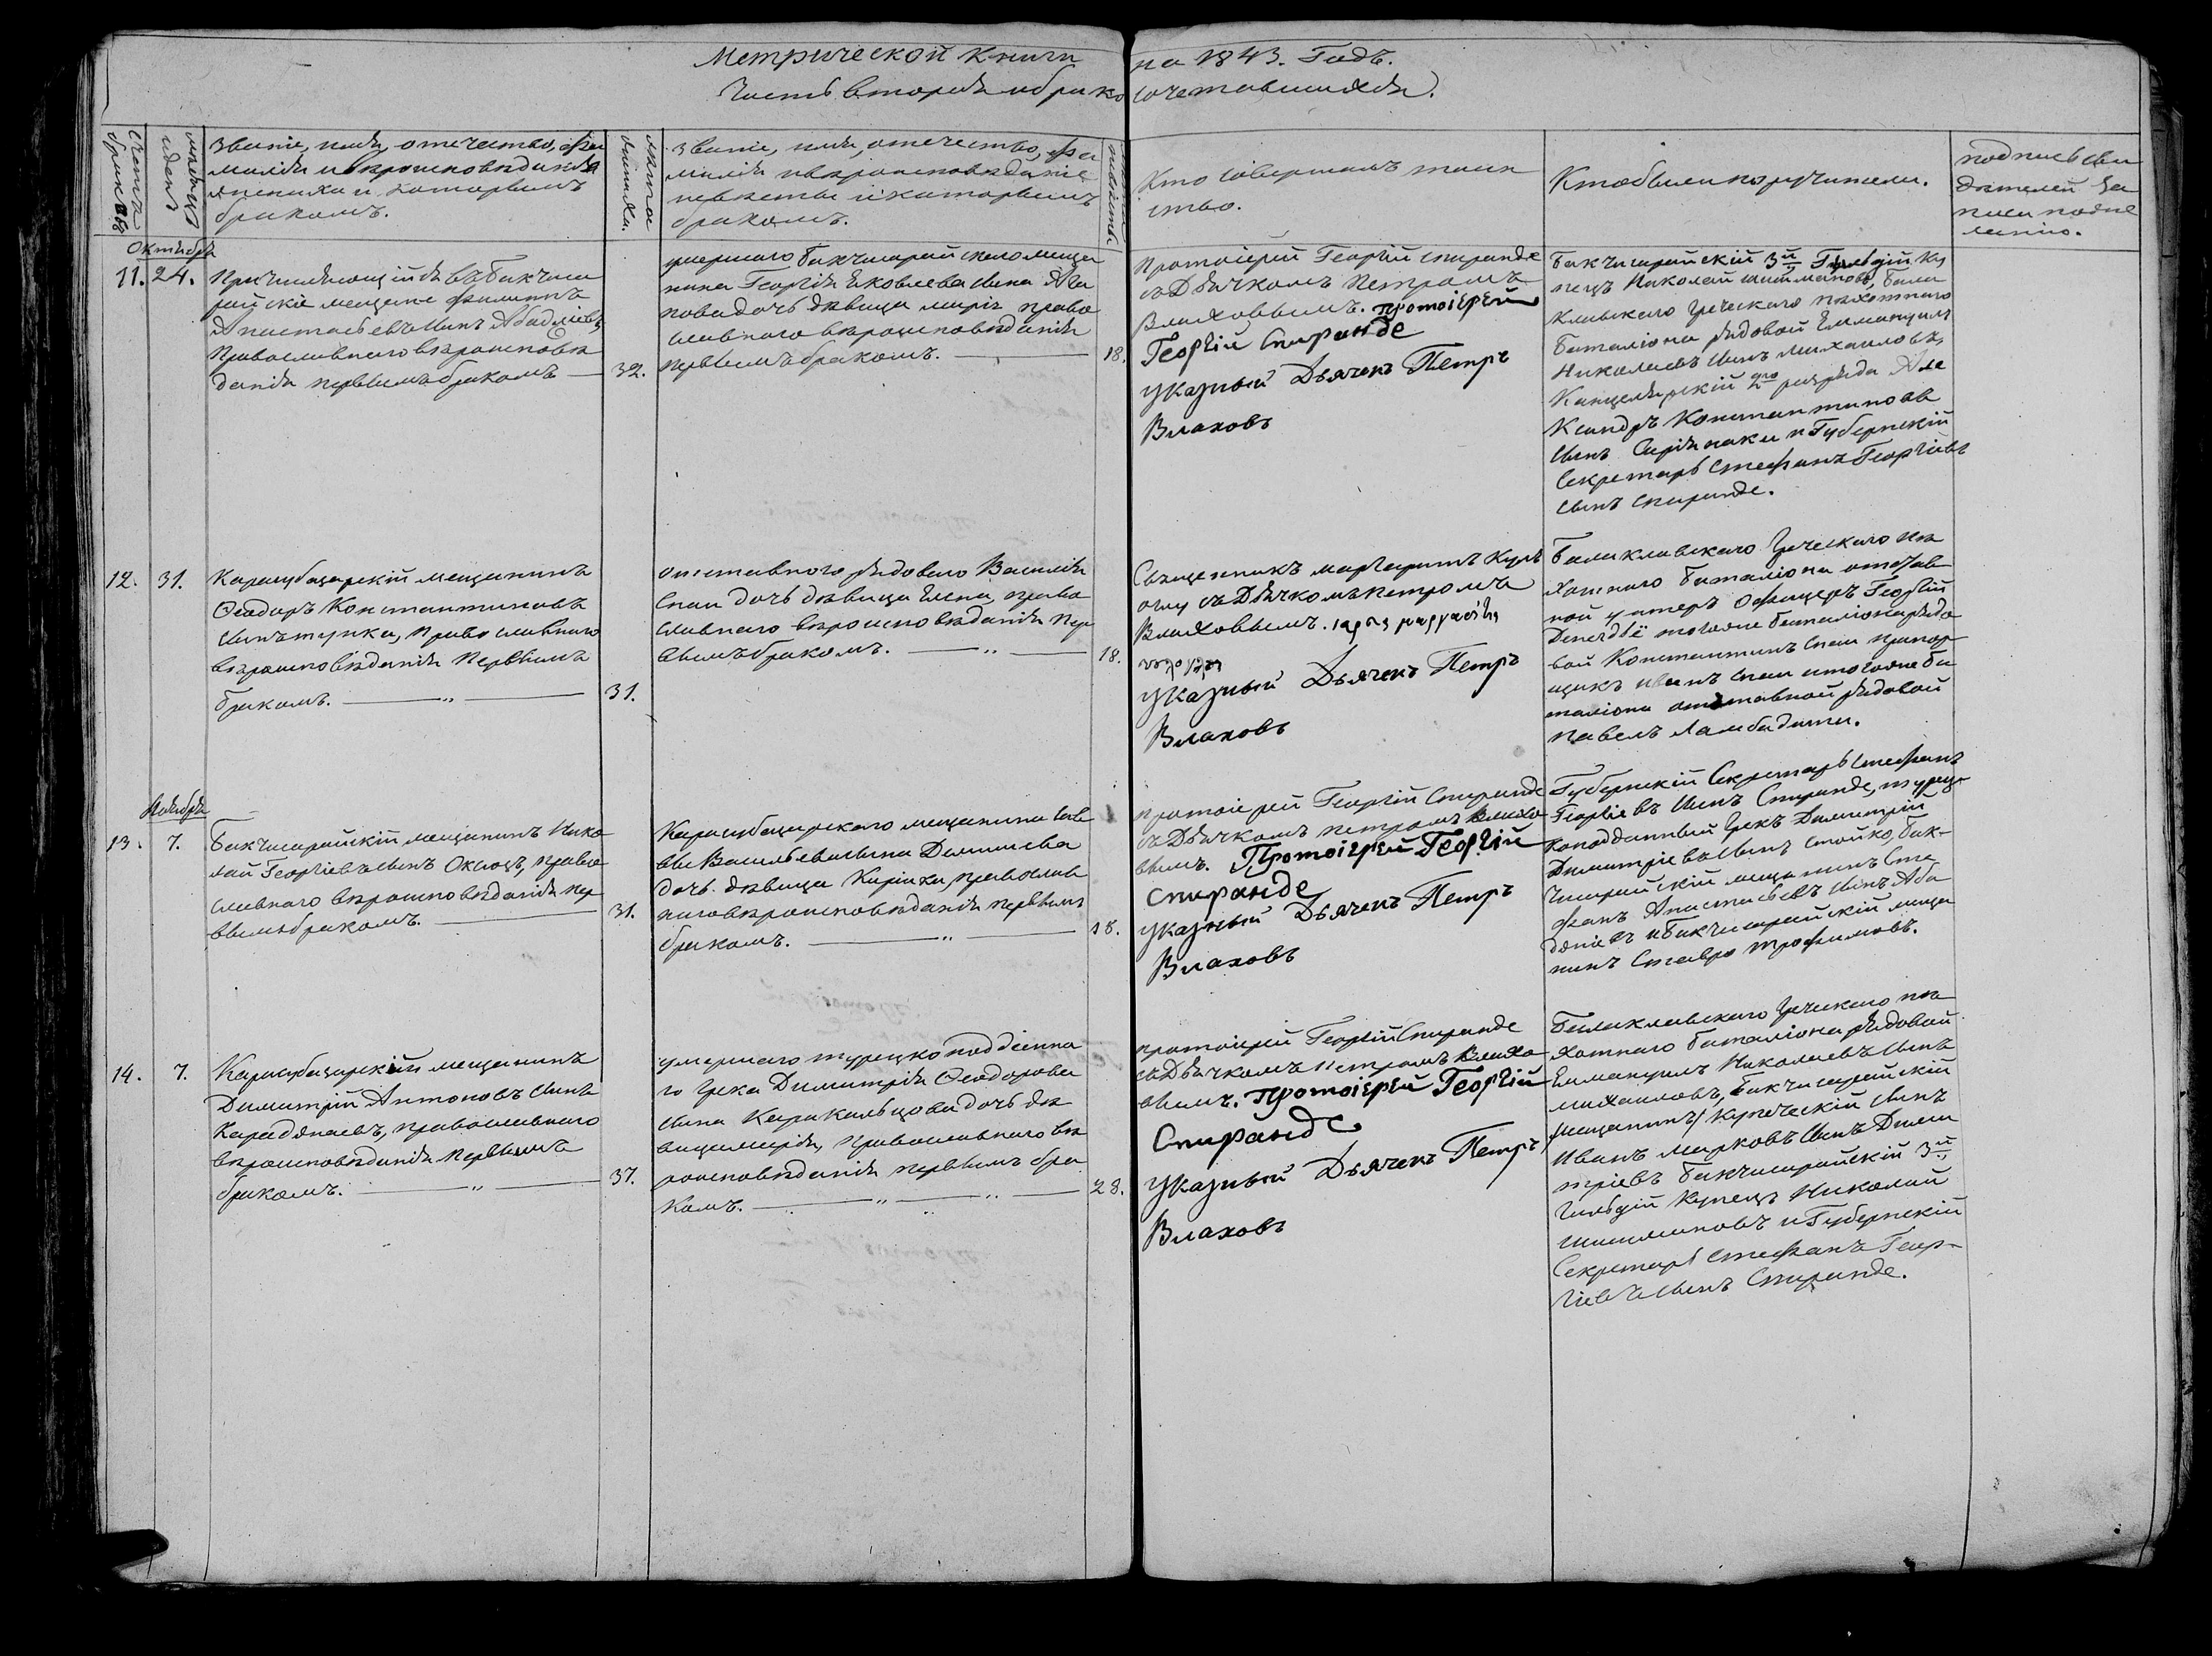 Метрической книги на 1843. Годъ.
Часть вторая о бракосочетавшихся.
Счетъ браковъ
мѣсяцъ и день
Званіе, имя, отечество, фа
милія и вѣроисповѣданія
жениха и которымъ
бракомъ.
лѣта жениха.
Званіе, имя, отечество, фа
милія и вѣроисповѣданіе
невѣсты и которымъ
бракомъ.
лѣта невѣсты.
Кто совершалъ таин
ство.
Кто были поручители.
подпись сви
дѣтелей за
писи по же
ланію.
Октября
11. 24.
Причисляющійся въ Бакчиса
райскіе мещане Филиппъ
Анастасьевъ сынъ Абаджіевъ
Православнаго вѣроисповѣ
данія первымъ бракомъ —
32.
умершаго Бакчисарайскаго меща
нина Георгія Яковлева сына
нова дочь дѣвица Марія право
славнаго вѣроисповѣданія
первымъ бракомъ. —
18.
протоіерей Георгій Спиранде
съ Дьячкомъ Петромъ
Влаховымъ. протоіерей
Георгій Спиранде
указный Дьячекъ Петръ
Влаховъ
Бакчисарайскій 3й Гильдіи ку
пецъ Николай Шишмановъ, Бала
клавскаго Греческаго пѣхотнаго
баталіона рядовой Еммануилъ
Николаевъ сынъ Михаиловъ,
Канцелярскій 2го разряда Але
ксандръ Константиновъ
сынъ и Губернскій
Секретарь Стефанъ Георгіевъ
сынъ Спиранде.
12. 31.
Карасубазарскій мещанинъ
Ѳеодоръ Константиновъ
сынъ Тунка, православнаго
вѣроисповѣданія первымъ
бракомъ. — „ —
31.
отставного рядового Василія
Спаи дочь дѣвица Елена, право
славнаго вѣроисповѣданія пер
вымъ бракомъ. — „ —
18.
Священникъ Маргаритъ
съ Дьячкомъ Петромъ
Влаховымъ.
указный Дьячекъ Петръ
Влаховъ
Балаклавскаго Греческаго пѣ
хотнаго баталіона отстав
ной унтеръ Офицеръ Георгій
того же баталіона рядо
вой Константинъ Спаи прапор
щикъ Иванъ Спаи и того же ба
таліона отставной рядовой
Павелъ Ламбадати.
Ноября
13. 7.
Бакчисарайскій мещанинъ Нико
лай Георгіевъ сынъ Оксюзъ, право
славнаго вѣроисповѣданія пер
вымъ бракомъ. —
31.
Карасубазарскаго мещанина Сав
вы Васильева сына Демишева
дочь дѣвица Киріаки, православ
наго вѣроисповѣданія первымъ
бракомъ. — „ —
18.
протоіерей Георгій Спиранде
съ Дьячкомъ Петромъ Влахо
вымъ. Протоіерей Георгій
Спиранде
указный Дьячекъ Петръ
Влаховъ
Губернскій Секретарь Стефанъ
Георгіевъ сынъ Спиранде, турец
коподданный Грекъ Димитрій
Димитріевъ сынъ Стойко, Бак-
чисарайскій мещанинъ Сте
фанъ Анастасьевъ сынъ Аба
джіевъ и Бакчисарайскій меща
нинъ Ставро Трофимовъ.
14. 7.
Карасубазарскій мещанинъ
Димитрій Антоновъ сынъ
Караджаевъ, православнаго
вѣроисповѣданія первымъ
бракомъ. — „ —
37.
умершаго турецкоподданна
го Грека Димитрія Ѳеодорова
сына Каракальцова дочь дѣ
вица Марія, Православнаго вѣ
роисповѣданія первымъ бра
комъ. — „ — „ —
28.
протоіерей Георгій Спиранде
съ Дьячкомъ Петромъ Влахо
вымъ. Протоіерей Георгій
Спиранде
указный Дьячекъ Петръ
Влаховъ
Балаклавскаго Греческаго пѣ
хотнаго баталіона рядовой
Еммануилъ Николаевъ сынъ
Михаиловъ, Бакчисарайскій
мещанинъ / купеческій сынъ
Иванъ Марковъ сынъ Дими
тріевъ Бакчисарайскій 3й
Гильдіи Купецъ Николай
Шишмановъ и Губернскій
Секретарь Стефанъ Геор-
гіевъ сынъ Спиранде.